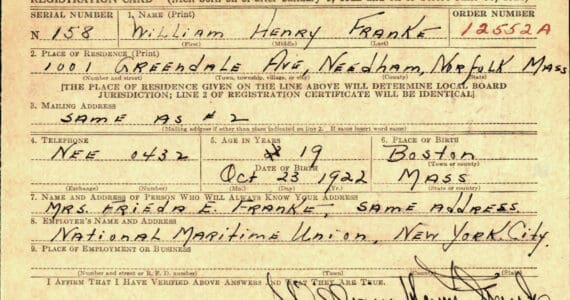 SERIAL NUMBER 1. NAME (Print) ORDER NUMBER
N 158 William Henry Franke 12552A
(First) (Middle) (Last)
2. PLACE OF RESIDENCE (Print)
1001 Greendale Ave, Needham, Norfolk Mass
(Number and street) (Town, township, village, or city) (County) (State)
[THE PLACE OF RESIDENCE GIVEN ON THE LINE ABOVE WILL DETERMINE LOCAL BOARD
JURISDICTION; LINE 2 OF REGISTRATION CERTIFICATE WILL BE IDENTICAL]
3. MAILING ADDRESS
Same As #2
[Mailing address if other than place indicated on line 2. If same insert word same]
4. TELEPHONE 5. AGE IN YEARS 6. PLACE OF BIRTH
NEE 0432 19 Boston
DATE OF BIRTH (Town or county)
Oct 23 1922 Mass
(Mo.) (Day) (Yr.) (State or country)
7. NAME AND ADDRESS OF PERSON WHO WILL ALWAYS KNOW YOUR ADDRESS
Mrs. Frieda E. Franke, Same Address
8. EMPLOYER'S NAME AND ADDRESS
National Maritime Union, New York City.
9. PLACE OF EMPLOYMENT OR BUSINESS
(Number and street or R. F. D. number) (Town) (County) (State)
I AFFIRM THAT I HAVE VERIFIED ABOVE ANSWERS AND THAT THEY ARE TRUE.